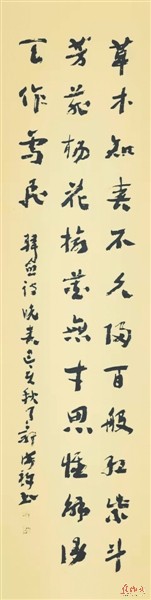 草木知春不久歸百般紅紫斗
芳菲楊花榆莢無才思惟解漫
天作雪飛
韓愈詩晚春己亥秋月